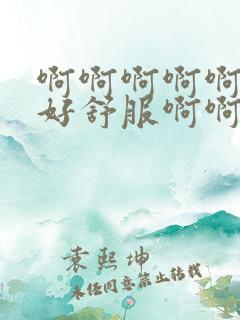 啊啊啊啊啊
好舒服啊啊
袁熙坤
未经同意禁止转载